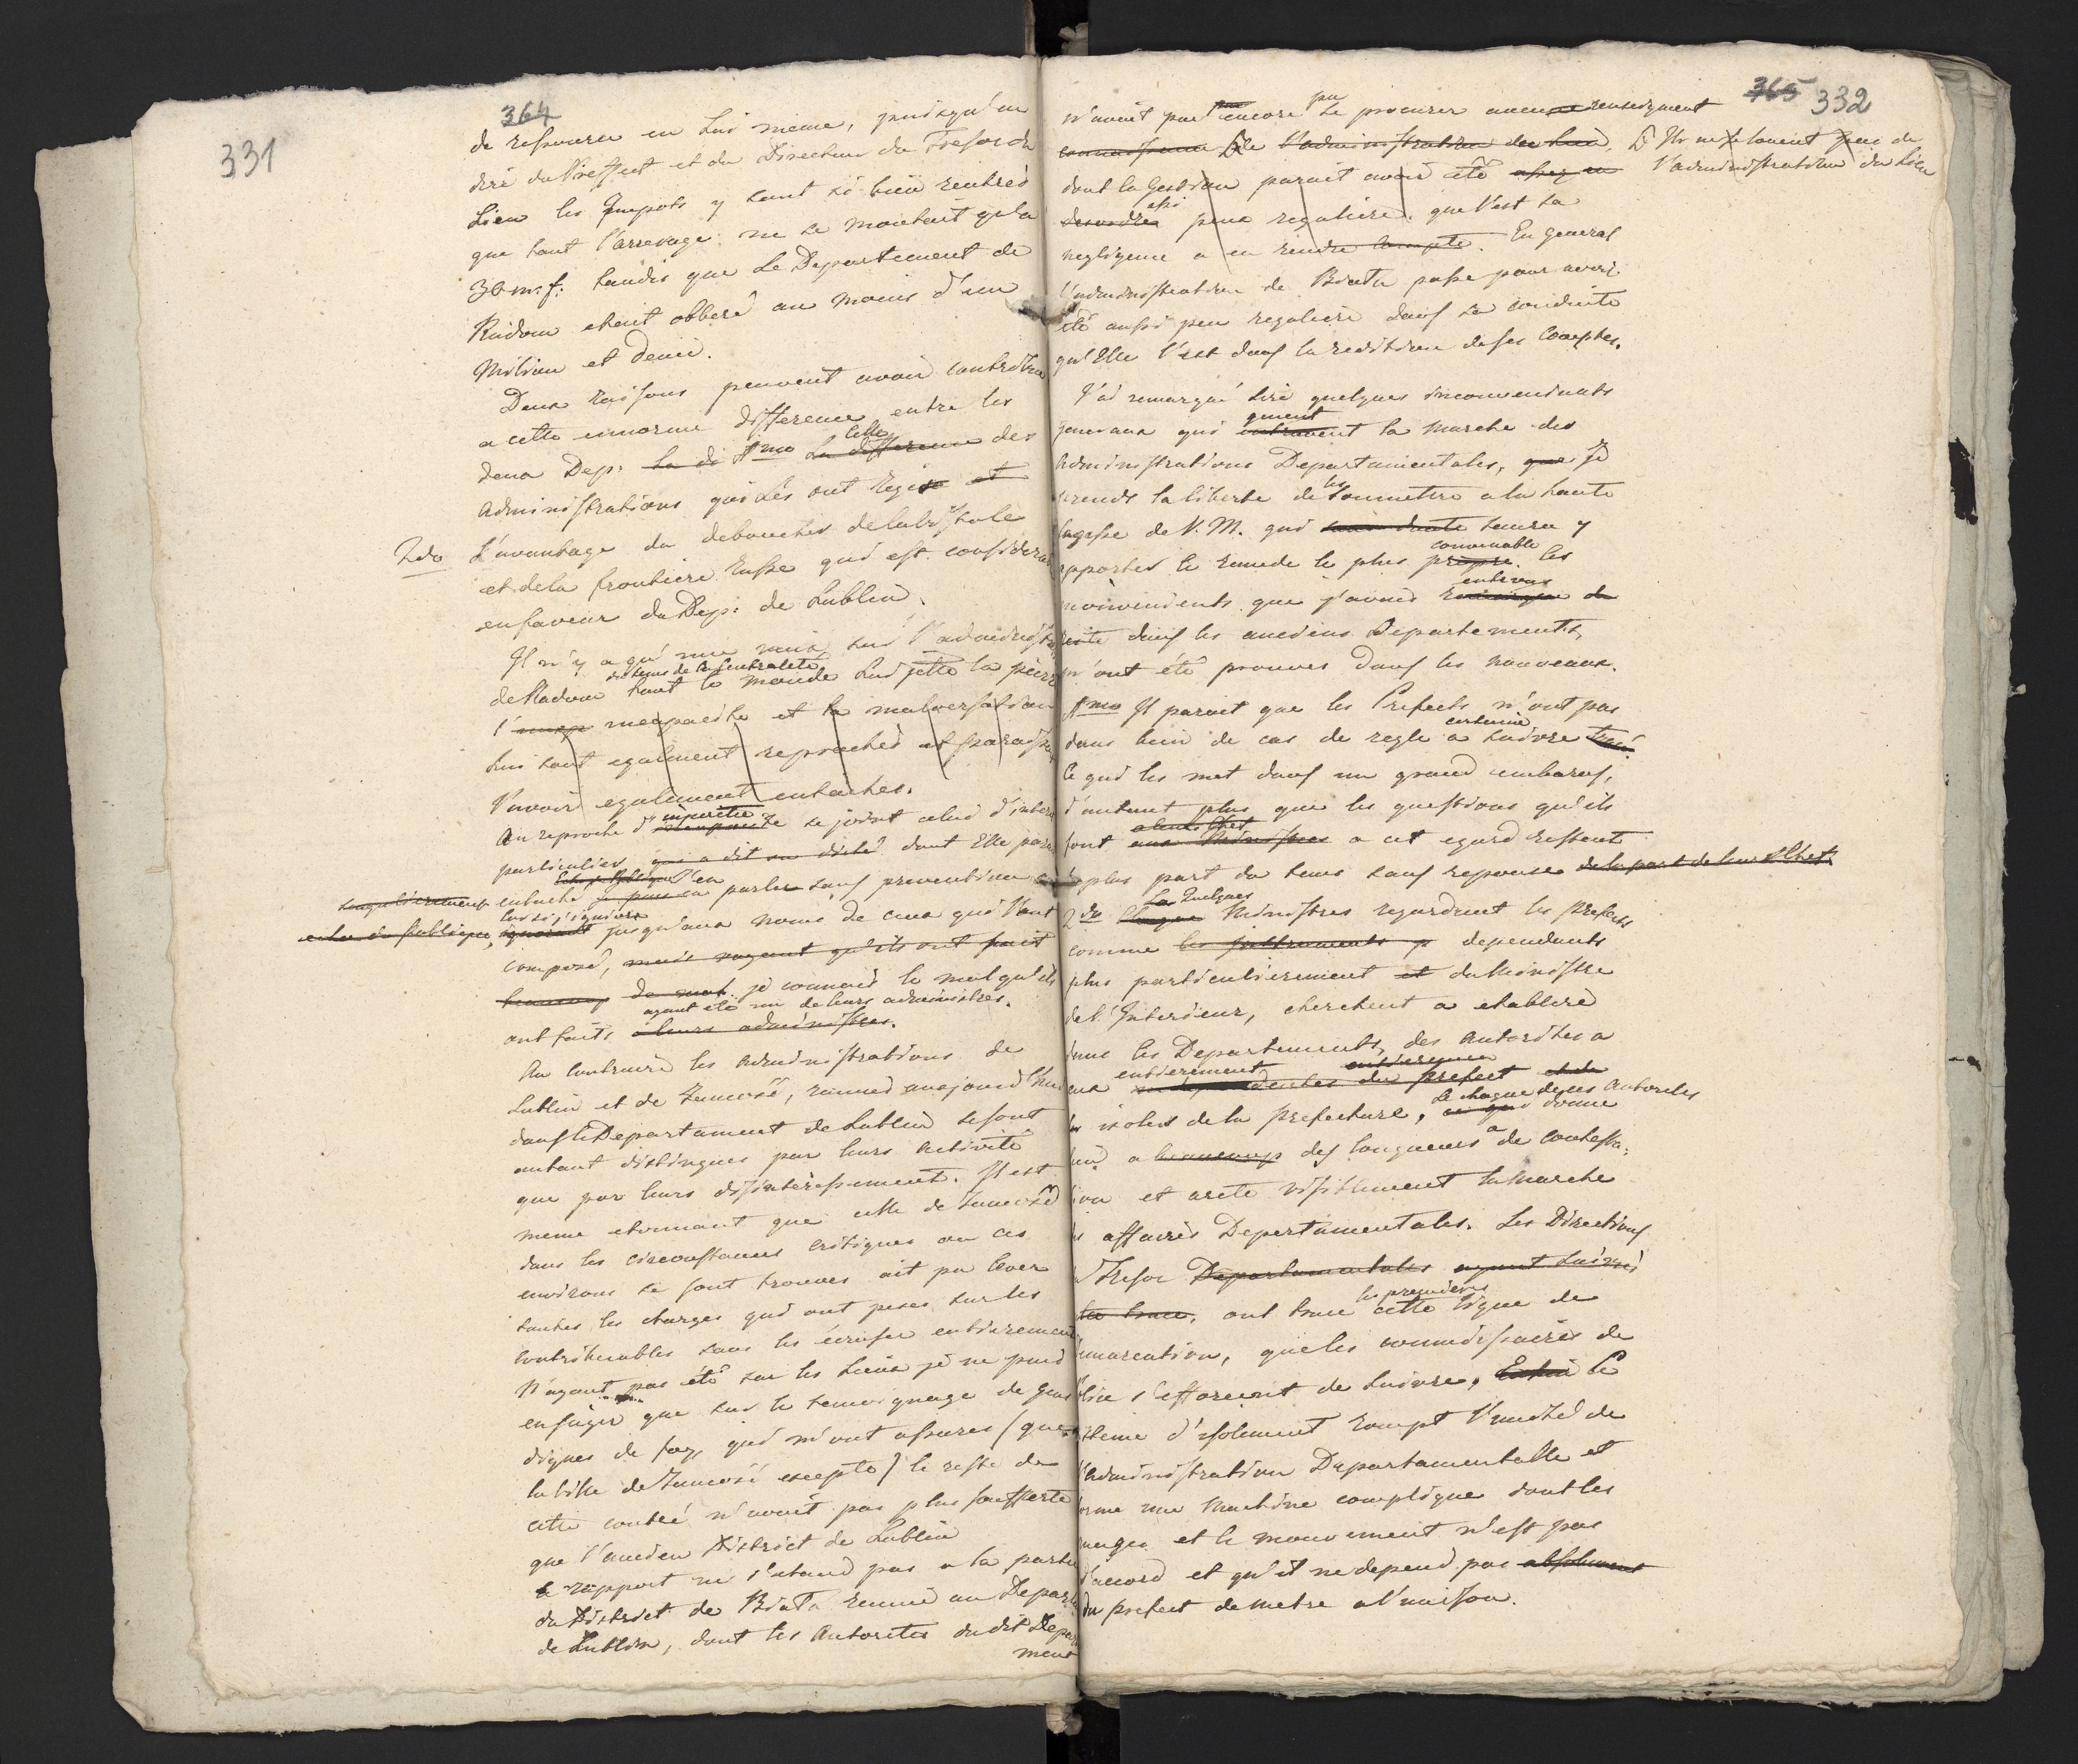 331
364
de ressource en Lui meme, puisqu'au
dire du Prefect et du Directeur du Tresor du
Lieu les Impots y sont si bien rentrés
que tout l'arrerage ne se montait qu'a
30 m: f: tandis que Le Departement de
Radom etait obberé au moins d'un
Milion et demi.
Deux raisons peuvent avoir contribué
a cette ennorme difference entre les
deux Dep: La di 1mo La difference celle des
administrations qui Les ont regis et
2do L'avantage du debouchés de la Vistule
et de la frontiere Russe qui est considerable
en faveur du Dep: de Lublin.
Il n'y a qu'une voix sur l'administration
de Radom du tems de la Centralité tout le monde Lui jette la pierre
l' incapacité et la malversation
Lui sont egalement reprochés et paraissent
l'avoir egalement entachés.
Au reproche d'imperitie se joint celui d'interet
particulier, qui a dit on dicté dont Elle parait
singulierement entaché. J'en parler sans prevention
echo du Publique, ignorant jusqu'aux noms de ceux qui l'ont
composé, mais voyant qu'ils ont fait
beaucoup de mal. je connais le mal qu'ils
ont faits ayant été un de leurs administrés. à leurs administrés.
Au contraire les administrations de
Lublin et de Zamosć, reunies aujourd'hui
dans le Departement de Lublin se sont
autant distingués par leurs activité
que par leurs desinteressement. Il est
meme etonnant que celle de Zamosć
dans les circonstances critiques ou ces
environs se sont trouvés ait pu lever
toutes les charges qui ont peses sur les
contribuables sans les écraser entierement
N'ayant pas été sur les Lieux je ne puis
en juger que sur le temoignage de gens
dignes de foy, qui m'ont assurés (que
la ville de Zamosć excepté) le reste de
cette contré n'avait pas plus soufferte
que l'ancien District de Lublin
Ce rapport ne s'etend pas a la partie
du District de Biała reunie au Departement
de Lublin, dont les Autorités du dit Departe
ment
365 332
n'avait pas encore pu Se procurer aucun renseignement
connaissance de l'administration du Lieu,
l'administration du Lieu
dont la Gestion parait avoir été assez en
desordre aussi peux reguliere que l'est sa
negligence a en rendre Compte. En general
l'administration de Biała passe pour avoir
été aussi peu reguliere dans sa conduite
qu'Elle l'est dans la reddition de ses Comptes.
J'ai remarqué Sire quelques inconvenients
generaux qui entravent gment la marche des
administrations Departamentales, que je
prends la liberté de les soumettre a la haute
sagesse de V. M. qui sans doute saura y
apporter le remede le plus propre convenable. Les
inconvenients que j'avais entrevus
reste dans les anciens Departements,
m'ont été prouvés dans les nouveaux.
1mo Il parait que les Prefects n'ont pas
dans bien de cas de regle certaine a suivre tracé.
Ce qui les met dans un grand embaras,
d'autant plus que les questions qu'ils
font aux Ministres a leurs Chef a cet egard restent
la plus part du tems sans reponse de la part de leurs Chefs.
2do Quelques Ministres regardent les Prefects
comme les instruments dependants
plus particulierement et du Ministre
de l'Interieur, cherchent a etablire
dans les Departements, des Autorités a
eux entierement independantes du Prefect et de
isolés de la Prefecture, Le choque de ces Autorités ce qui donne
lieu a beaucoup des longueurs a de contesta-
tion et arete visiblement la marche
des affaires Departamentales. Les Directions
du Tresor Departamentales ayant suivi
les trace, ont tracé les premiers cette ligne de
demarcation, que les commissaires de
Police s'efforcent de suivre, Enfin Ce
Systeme d'isolement rompt l'unité de
l'administration Departamentalle et
forme une Machine compliqué dont les
rouages et le mouvement n'est pas
d'accord et qu'il ne depend pas absolument
du prefect de metre a l'unisson.